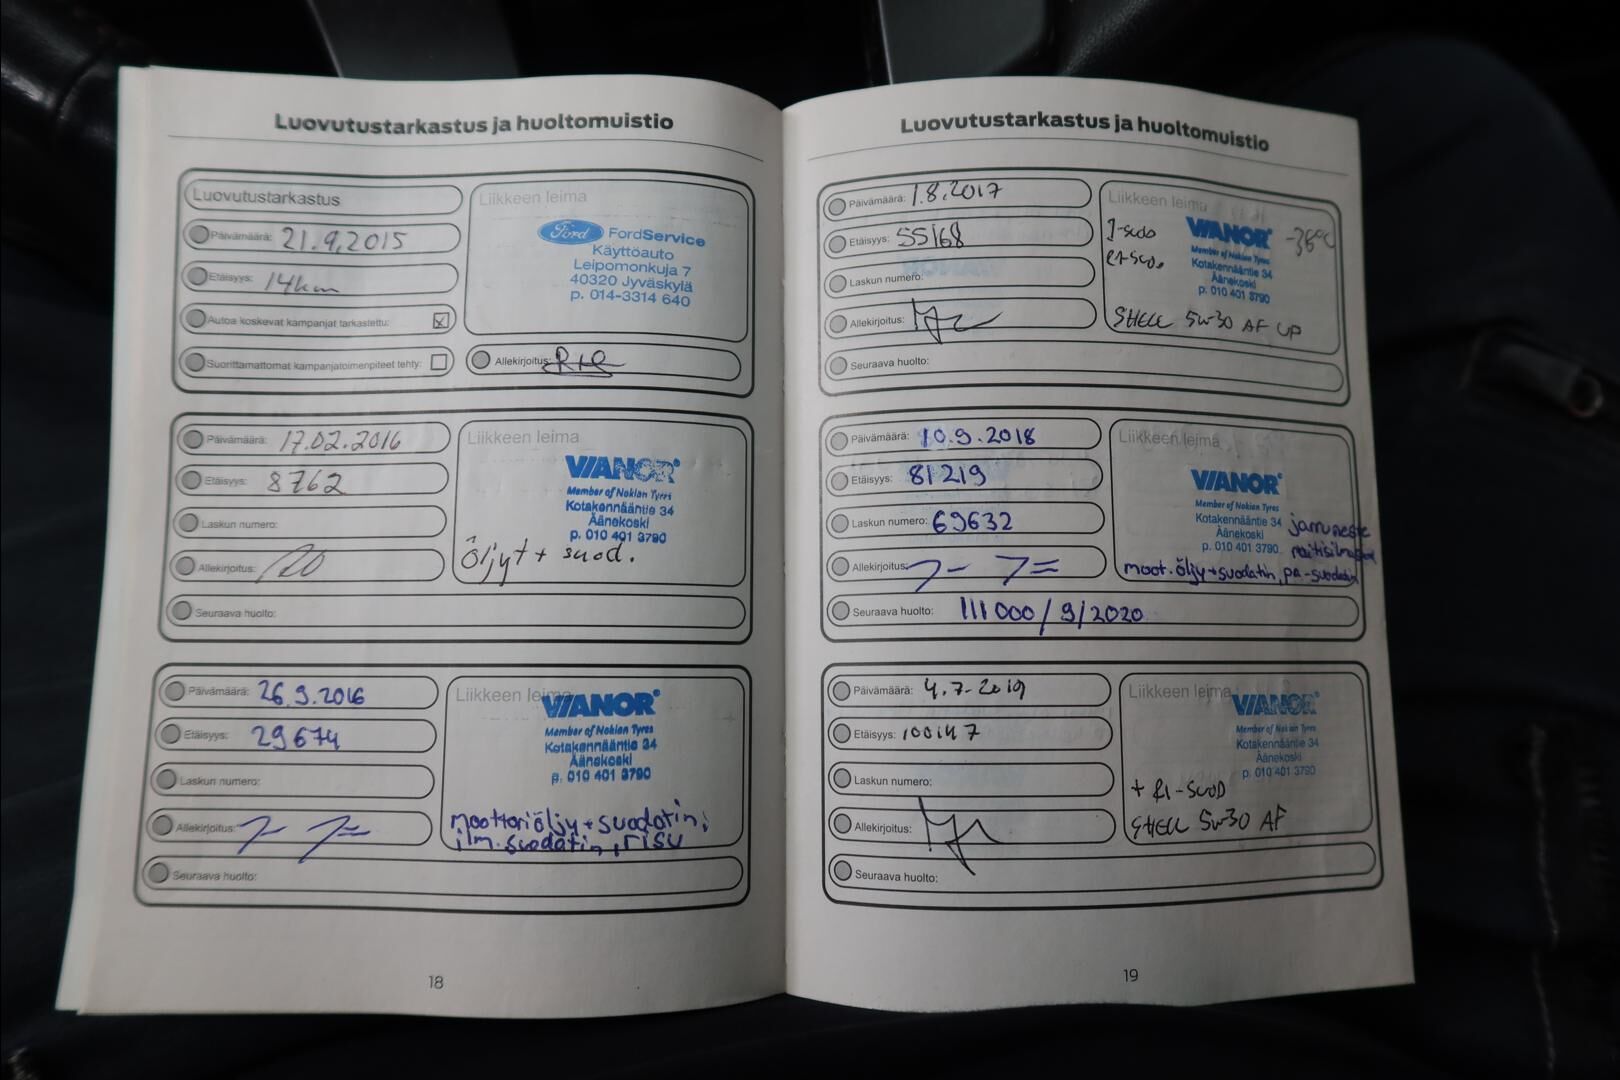 Luovutustarkastus ja huoltomuistio
Luovutustarkastus
Päivämäärä: 21.9.2015
Etäisyys: 14km
Autoa koskevat kampanjat tarkastettu: x
Suorittamattomat kampanjatoimenpiteet tehty:
Liikkeen leima
Ford FordService
Käyttöauto
Leipomonkuja 7
40320 Jyväskylä
p. 014-3314 640
Allekirjoitus:
Päivämäärä: 17.02.2016
Etäisyys: 8762
Laskun numero:
Allekirjoitus:
Liikkeen leima
VIANOR
Member of Nokian Tyres
Kotakennääntie 34
Äänekoski
p. 010 401 3790
Öljyt + suod.
Seuraava huolto:
Päivämäärä: 26.9.2016
Etäisyys: 29674
Laskun numero:
Allekirjoitus:
Liikkeen leima
VIANOR
Member of Nokian Tyres
Kotakennääntie 34
Äänekoski
p. 010 401 3790
moottoriöljy + suodatin,
ilm.suodatin, risu
Seuraava huolto:
18
Luovutustarkastus ja huoltomuistio
Päivämäärä: 1.8.2017
Etäisyys: 55168
Laskun numero:
Allekirjoitus:
Liikkeen leima
VIANOR -36°C
Member of Nokian Tyres
Kotakennääntie 34
Äänekoski
p. 010 401 3790
SHELL 5W-30 AF UP
Seuraava huolto:
Päivämäärä: 10.9.2018
Etäisyys: 81219
Laskun numero: 69632
Allekirjoitus:
Liikkeen leima
VIANOR
Member of Nokian Tyres
Kotakennääntie 34 jarruneste
Äänekoski
p. 010 401 3790
moot.öljy+suodatin, pa-suodatin
Seuraava huolto: 111000/9/2020
Päivämäärä: 4.7-2019
Etäisyys: 100147
Laskun numero:
Allekirjoitus:
Liikkeen leima
VIANOR
Member of Nokian Tyres
Kotakennääntie 34
Äänekoski
p. 010 401 3790
+ RI-SUOD
SHELL 5W-30 AF
Seuraava huolto:
19